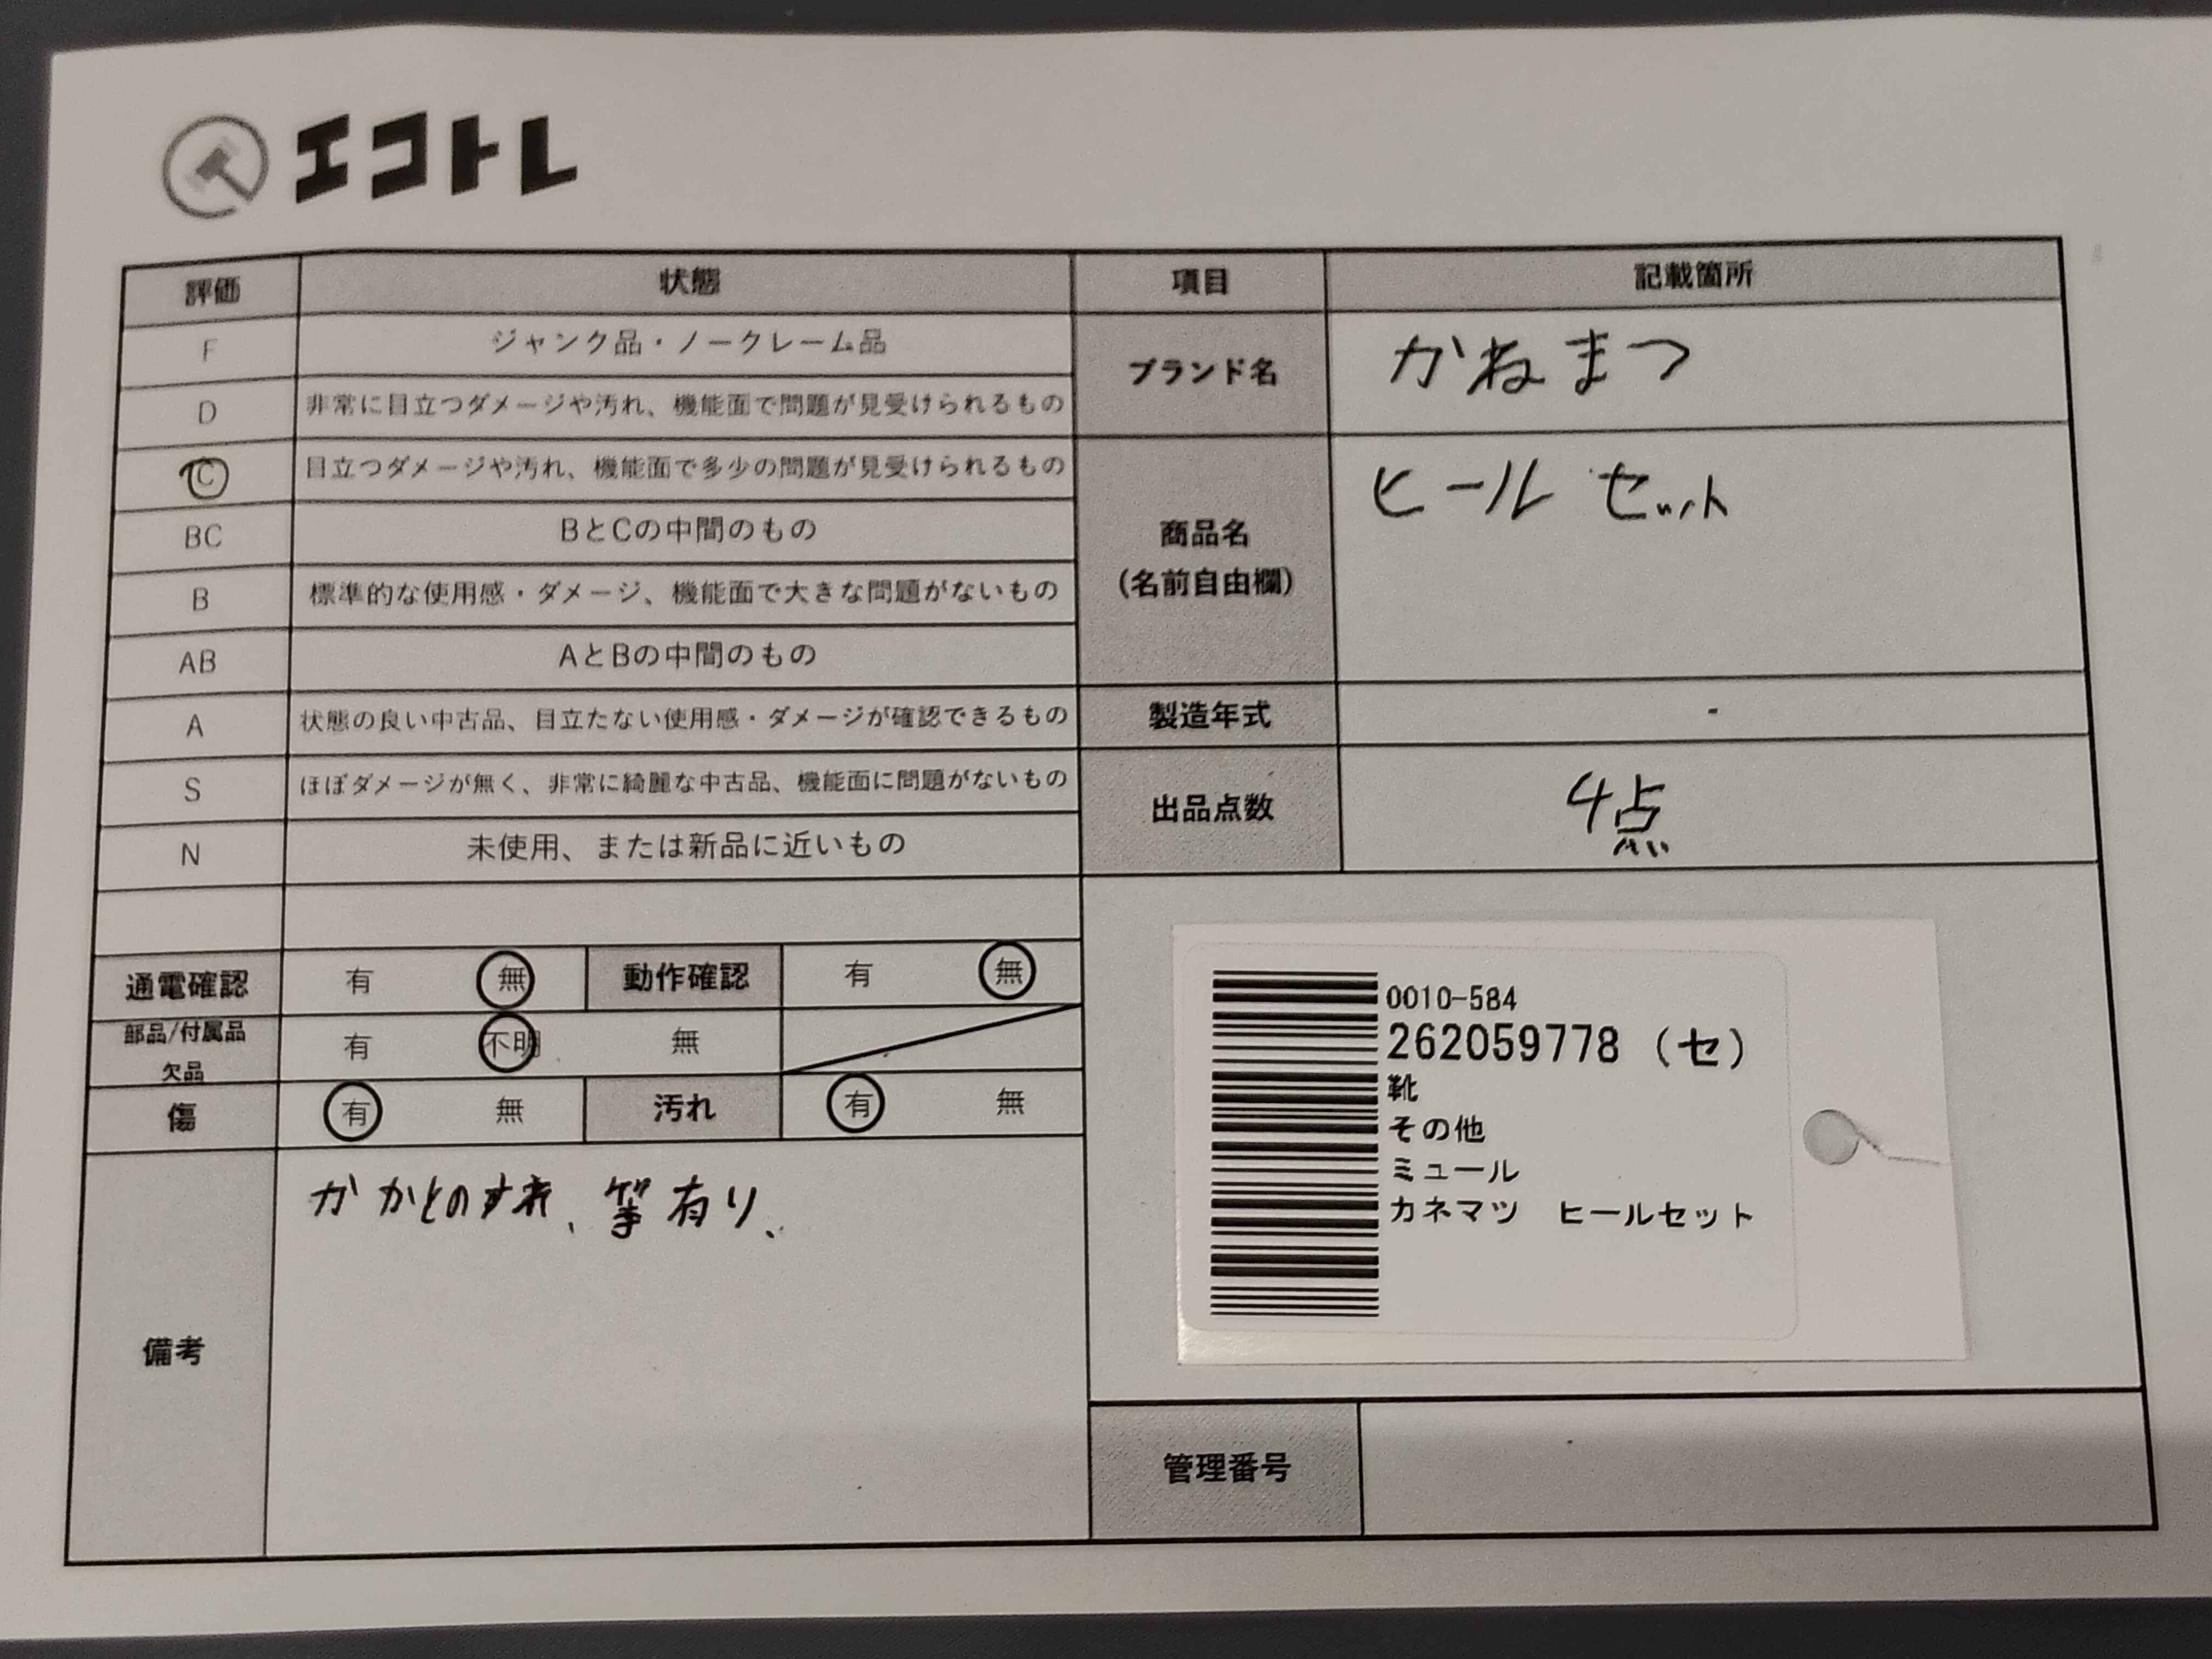 エコトレ
評価 状態 項目 記載箇所
F ジャンク品・ノークレーム品
D 非常に目立つダメージや汚れ、機能面で問題が見受けられるもの
C 目立つダメージや汚れ、機能面で多少の問題が見受けられるもの
BC BとCの中間のもの
B 標準的な使用感・ダメージ、機能面で大きな問題がないもの
AB AとBの中間のもの
A 状態の良い中古品、目立たない使用感・ダメージが確認できるもの
S ほぼダメージが無く、非常に綺麗な中古品、機能面に問題がないもの
N 未使用、または新品に近いもの
ブランド名 かねまつ
商品名 ヒールセット
(名前自由欄)
製造年式 -
出品点数 4点
通電確認 有 無 動作確認 有 無
部品/付属品
欠品 有 不明 無
傷 有 無 汚れ 有 無
備考 かかとのすれ、等有り、
0010-584
262059778 (セ)
靴
その他
ミュール
カネマツ ヒールセット
管理番号